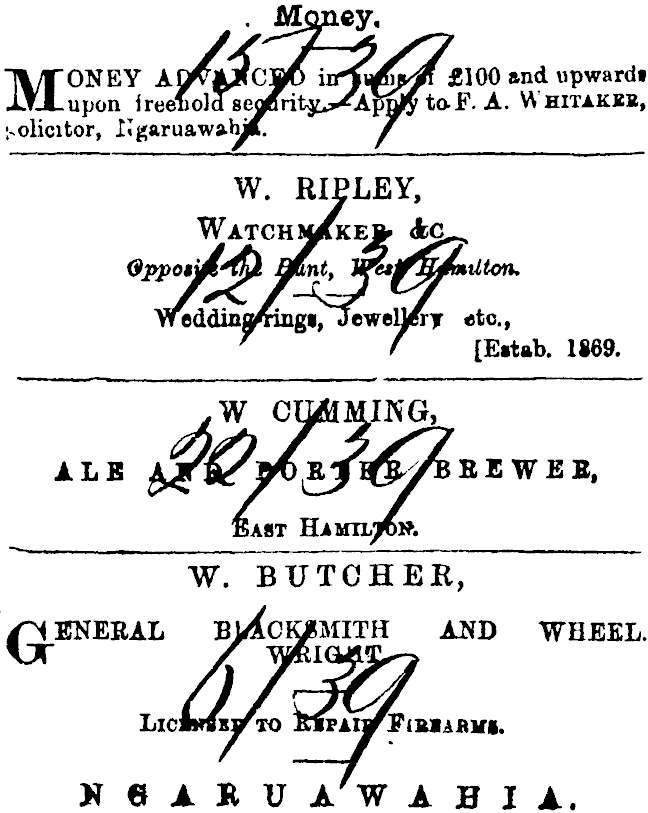 Money.
15/39
MONEY ADVANCED in sums of £100 and upwards
upon freehold security.—Apply to F. A. WHITAKER,
Solicitor, Ngaruawahia.
W. RIPLEY,
WATCHMAKER &c
Opposite the Punt, West Hamilton.
12/39
Wedding rings, Jewellery etc.,
[Estab. 1869.
W CUMMING,
22/39
ALE AND PORTER BREWER,
EAST HAMILTON.
W. BUTCHER,
GENERAL BLACKSMITH AND WHEEL.
WRIGHT
/39
LICENSED TO REPAIR FIREARMS.
NGARUAWAHIA.